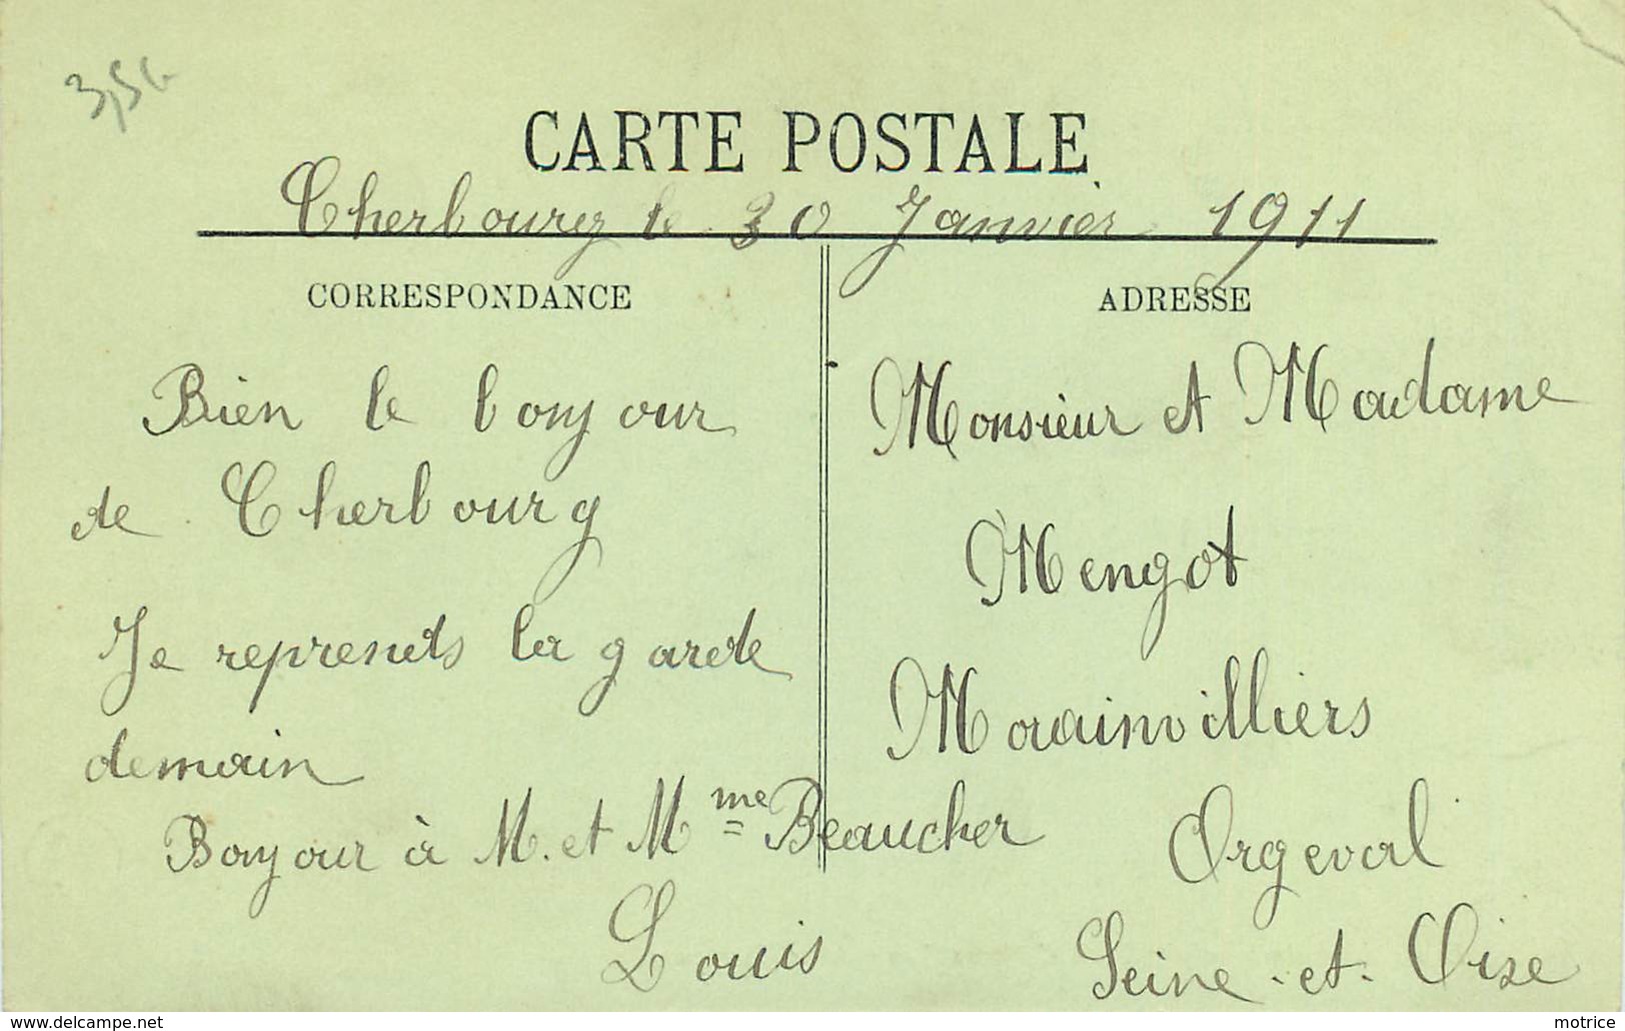 3,50
CARTE POSTALE
Cherbourg le 30 Janvier 1911
CORRESPONDANCE
Bien le bonjour
de Cherbourg
Je reprends la garde
demain
Bonjour à M. et Mme Beaucher
Louis
ADRESSE
Monsieur et Madame
Mengot
Morainvilliers
Orgeval
Seine-et-Oise
© delcampe.net
motrice